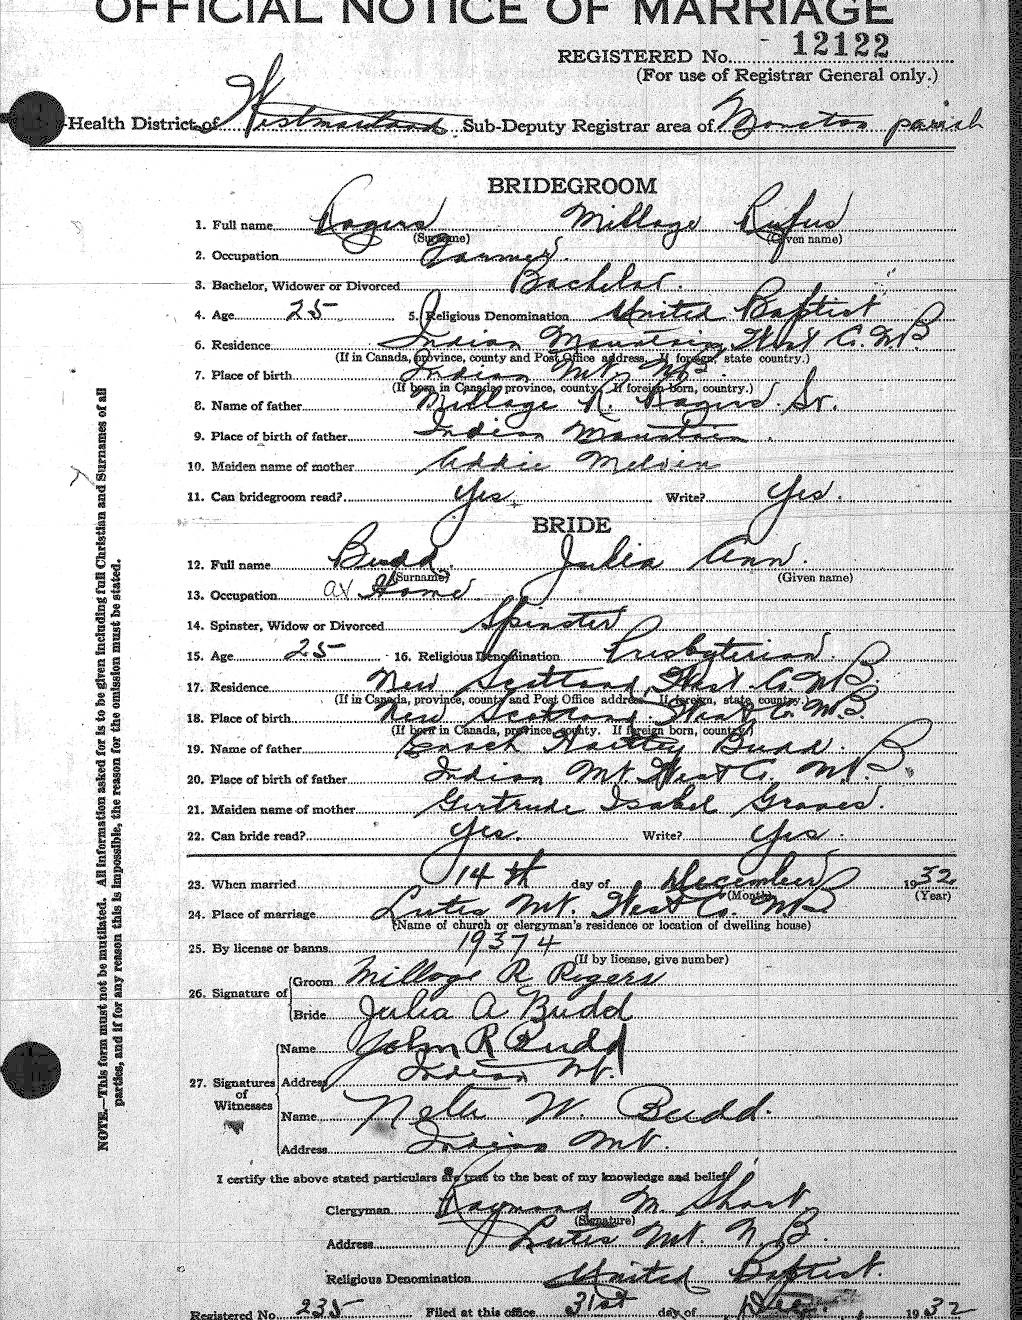 OFFICIAL NOTICE OF MARRIAGE
REGISTERED No. 12122
(For use of Registrar General only.)
-Health District of Westmorland Sub-Deputy Registrar area of Moncton parish
BRIDEGROOM
1. Full name Rogers Millage Rufus
(Surname) (Given name)
2. Occupation Farmer.
3. Bachelor, Widower or Divorced Bachelor.
4. Age 25 5. Religious Denomination United Baptist
6. Residence Indian Mountain, West Co. N.B
(If in Canada, province, county and Post Office address. If foreign, state country.)
7. Place of birth Indian Mt. N.B.
(If born in Canada, province, county. If foreign born, country.)
8. Name of father Millage R. Rogers. Sr.
9. Place of birth of father Indian Mountain.
10. Maiden name of mother Addie Melvin
11. Can bridegroom read? Yes Write? Yes.
BRIDE
12. Full name Budd. Julia Ann.
(Surname) (Given name)
13. Occupation at Home
14. Spinster, Widow or Divorced Spinster
15. Age 25 16. Religious Denomination Presbyterian.
17. Residence New Scotland, West Co. N.B.
(If in Canada, province, county and Post Office address. If foreign, state country.)
18. Place of birth New Scotland, West Co. N.B.
(If born in Canada, province, county. If foreign born, country.)
19. Name of father Enoch Budd.
20. Place of birth of father Indian Mt. West Co. N.B.
21. Maiden name of mother Gertrude Isabel Graves.
22. Can bride read? Yes. Write? Yes.
23. When married 14th day of December 1932
(Month) (Year)
24. Place of marriage Lutes Mt. West Co. N.B
(Name of church or clergyman's residence or location of dwelling house)
25. By license or banns 19374
(If by license, give number)
26. Signature of Groom Millage R Rogers
Bride Julia A Budd
27. Signatures of Witnesses Name John R Budd
Address Indian Mt.
Name Neta W. Budd.
Address Indian Mt.
I certify the above stated particulars are true to the best of my knowledge and belief
Clergyman Raymond M. Short
(Signature)
Address Lutes Mt. N.B.
Religious Denomination United Baptist.
Registered No. 235 Filed at this office 31st day of Dec. 1932
NOTE.—This form must not be mutilated. All information asked for is to be given including full Christian and Surnames of all
parties, and if for any reason this is impossible, the reason for the omission must be stated.